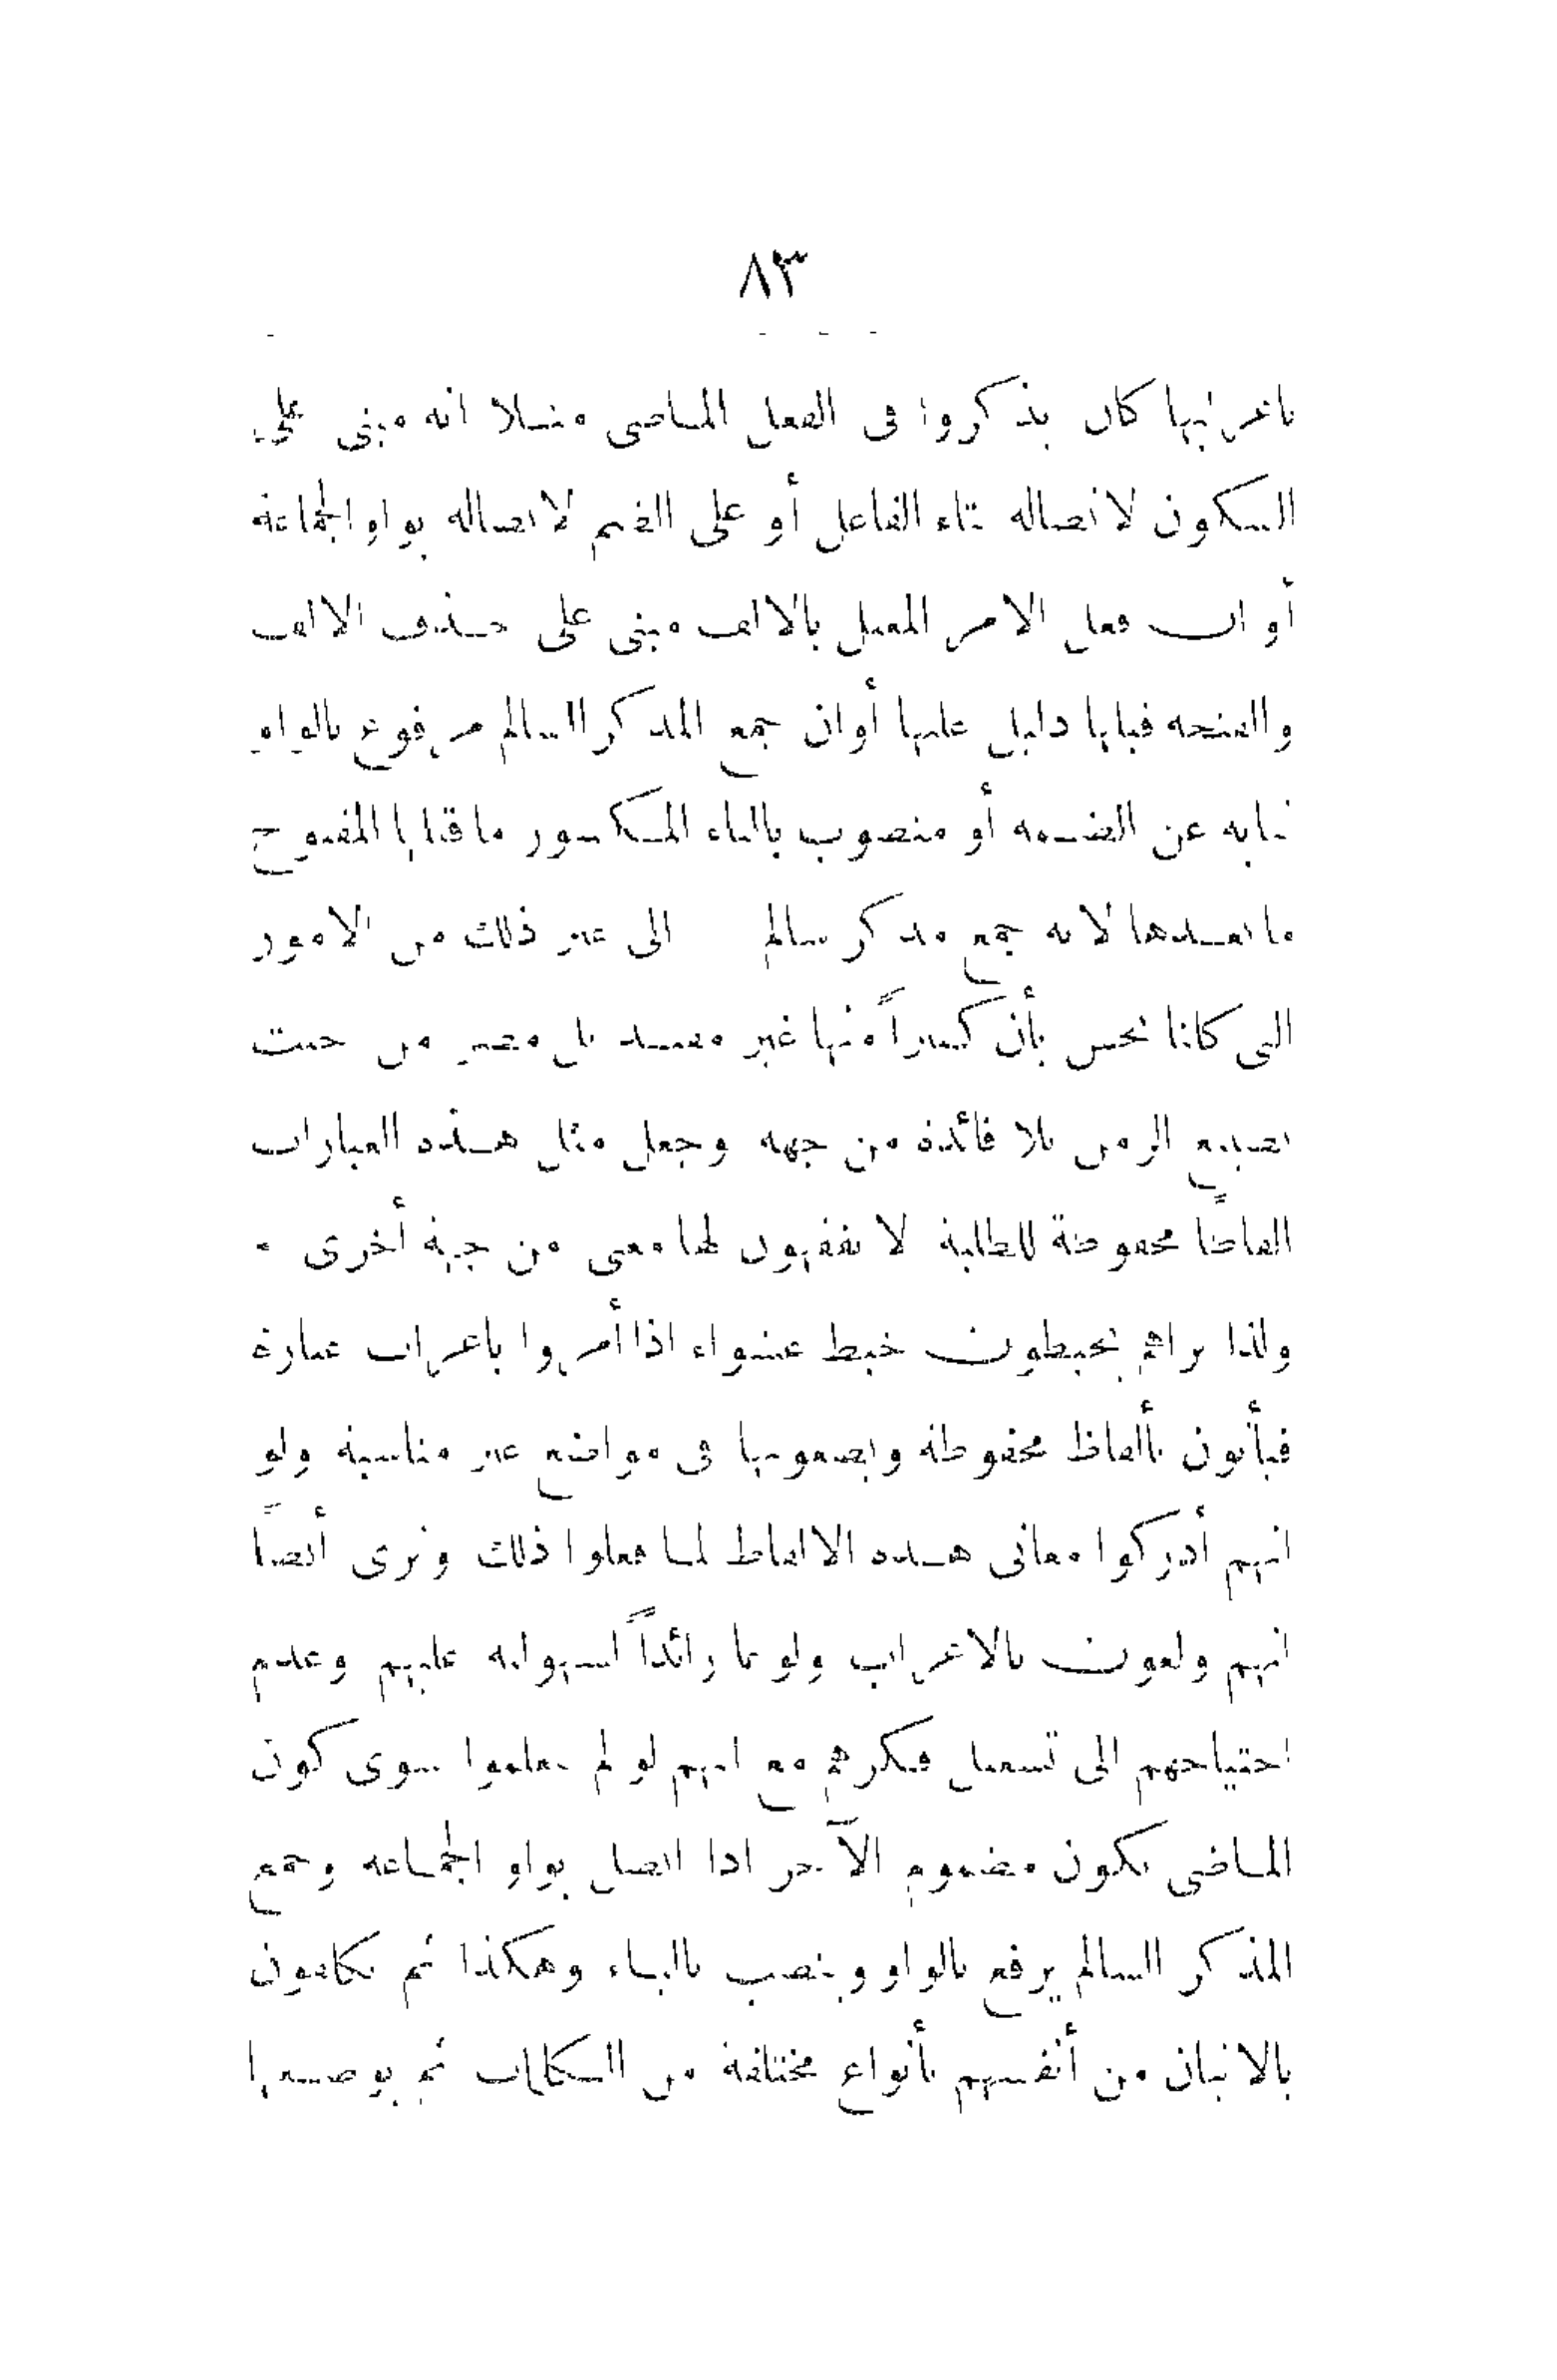 ٨٣
باعرابها كان يذكروا فى الفعل الماضى مثلا انه مبنى على
السكون لاتصاله بتاء الفاعل أو على الضم لاتصاله بواو الجماعة
أو ان فعل الامر المعتل بالالف مبنى على حذف الالف
والفتحة قبلها دليل عليها أو ان جمع المذكر السالم مرفوع بالواو
نيابه عن الضمه أو منصوب بالياء المكسور ما قبلها المفتوح
ما بعدها لانه جمع مذكر سالم الى غير ذلك من الامور
التى كلنا نحس بأن كثيراً منها غير مفيد بل مضر من حيث
تضييع الزمن بلا فائدة من جهه وجعل مثل هذه العبارات
الفاظاً محفوظة للطلبة لا يفقهون لها معنى من جهة أخرى .
ولذا نراهم يخبطون خبط عشواء اذا أمروا باعراب عبارة
فيأتون بألفاظ محفوظة ويضعونها فى مواضع غير مناسبة ولو
انهم أدركوا معانى هذه الالفاظ لما فعلوا ذلك ونرى أيضاً
انهم ولعون بالاعراب ولوعا زائداً لسهولته عليهم وعدم
احتياجهم الى تشغيل فكرهم مع انهم لو لم يعلموا سوى كون
الماضى يكون مضموم الآخر اذا اتصل بواو الجماعه وجمع
المذكر السالم يرفع بالواو وينصب بالياء وهكذا ثم يكلفون
بالاتيان من أنفسهم بأنواع مختلفة من الكلمات ثم بوضعها